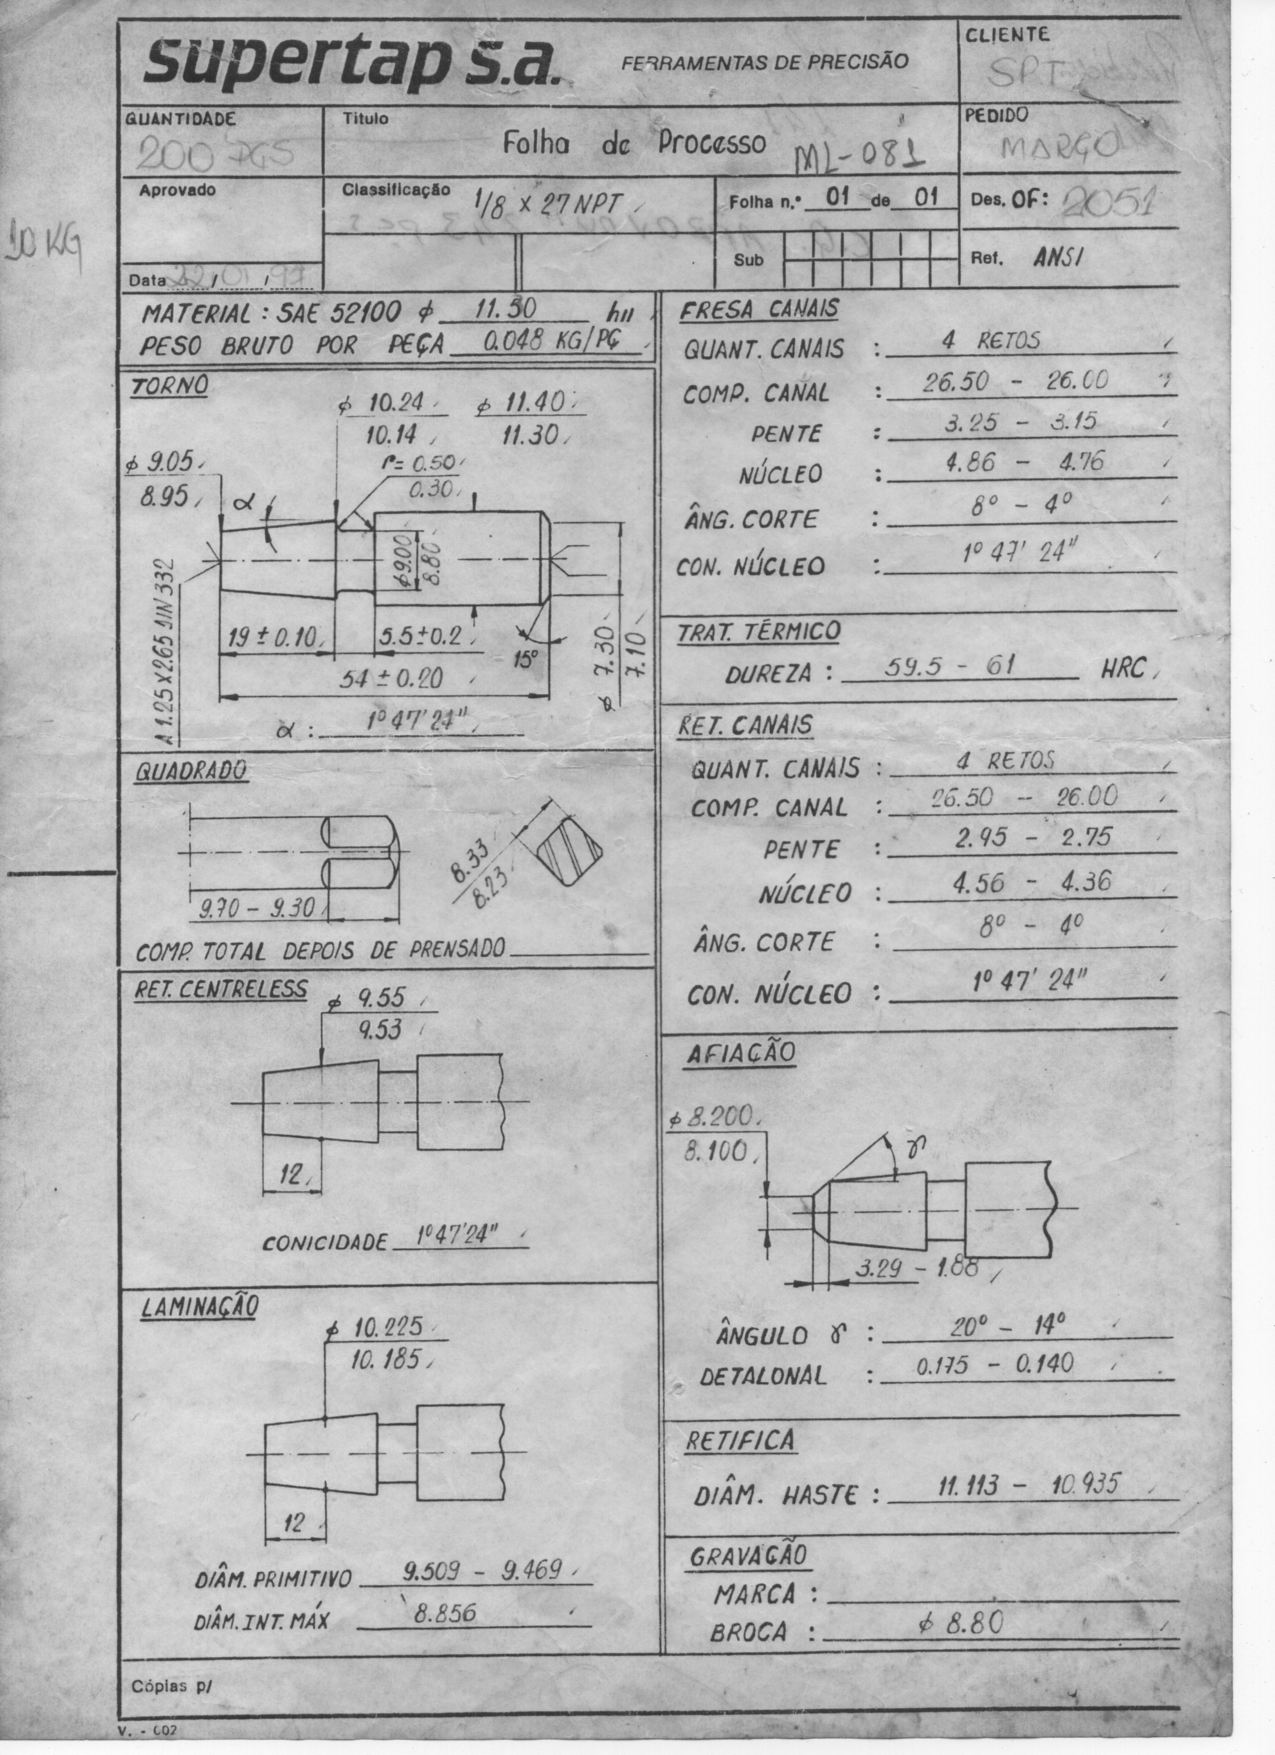 supertap s.a.
FERRAMENTAS DE PRECISÃO
CLIENTE
SPT
QUANTIDADE
200 PÇS
Título
Folha de Processo ML-081
PEDIDO
MARÇO
Aprovado
Classificação 1/8 x 27 NPT
Folha n.º 01 de 01
Des. OF: 2051
10 KG
Sub
Ref. ANSI
Data 22/01/97
MATERIAL : SAE 52100 φ 11.50 h11
PESO BRUTO POR PEÇA 0.048 KG/PÇ
TORNO
φ 10.24
10.14
φ 11.40
11.30
φ 9.05
8.95
r= 0.50
0.30
α
φ9.00
8.80
A 1.25X2.65 DIN 332
19 ± 0.10
5.5±0.2
15º
φ 7.30
7.10
54 ± 0.20
α : 1º47'24"
QUADRADO
8.33
8.23
9.70 - 9.30
COMP. TOTAL DEPOIS DE PRENSADO
RET. CENTRELESS
φ 9.55
9.53
12
CONICIDADE 1º47'24"
LAMINAÇÃO
φ 10.225
10.185
12
DIÂM. PRIMITIVO 9.509 - 9.469
DIÂM. INT. MÁX 8.856
FRESA CANAIS
QUANT. CANAIS : 4 RETOS
COMP. CANAL : 26.50 - 26.00
PENTE : 3.25 - 3.15
NÚCLEO : 4.86 - 4.76
ÂNG. CORTE : 8º - 4º
CON. NÚCLEO : 1º 47' 24"
TRAT. TÉRMICO
DUREZA : 59.5 - 61 HRC
RET. CANAIS
QUANT. CANAIS : 4 RETOS
COMP. CANAL : 26.50 - 26.00
PENTE : 2.95 - 2.75
NÚCLEO : 4.56 - 4.36
ÂNG. CORTE : 8º - 4º
CON. NÚCLEO : 1º 47' 24"
AFIAÇÃO
φ 8.200
8.100
γ
3.29 - 1.88
ÂNGULO γ : 20º - 14º
DETALONAL : 0.175 - 0.140
RETIFICA
DIÂM. HASTE : 11.113 - 10.935
GRAVAÇÃO
MARCA :
BROCA : φ 8.80
Cópias p/
V. - 002